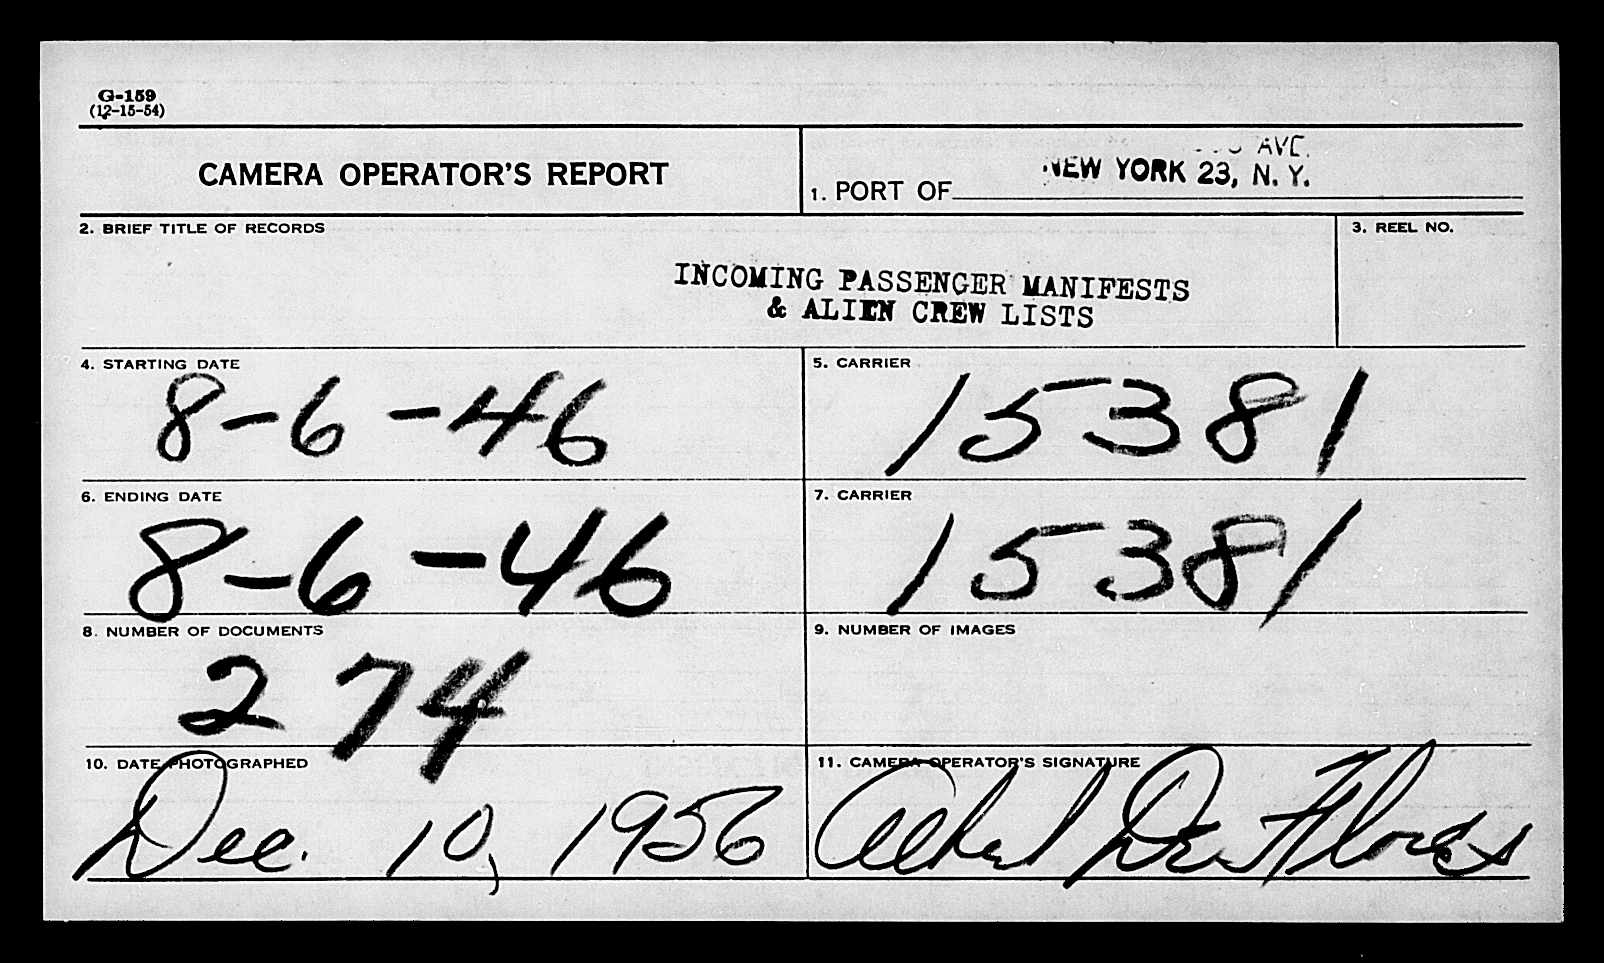 G-159
(12-15-54)
CAMERA OPERATOR'S REPORT
AVE.
1. PORT OF NEW YORK 23, N. Y.
2. BRIEF TITLE OF RECORDS
3. REEL NO.
INCOMING PASSENGER MANIFESTS
& ALIEN CREW LISTS
4. STARTING DATE
8-6-46
5. CARRIER
15381
6. ENDING DATE
8-6-46
7. CARRIER
15381
8. NUMBER OF DOCUMENTS
274
9. NUMBER OF IMAGES
10. DATE PHOTOGRAPHED
Dec. 10, 1956
11. CAMERA OPERATOR'S SIGNATURE
De Flores